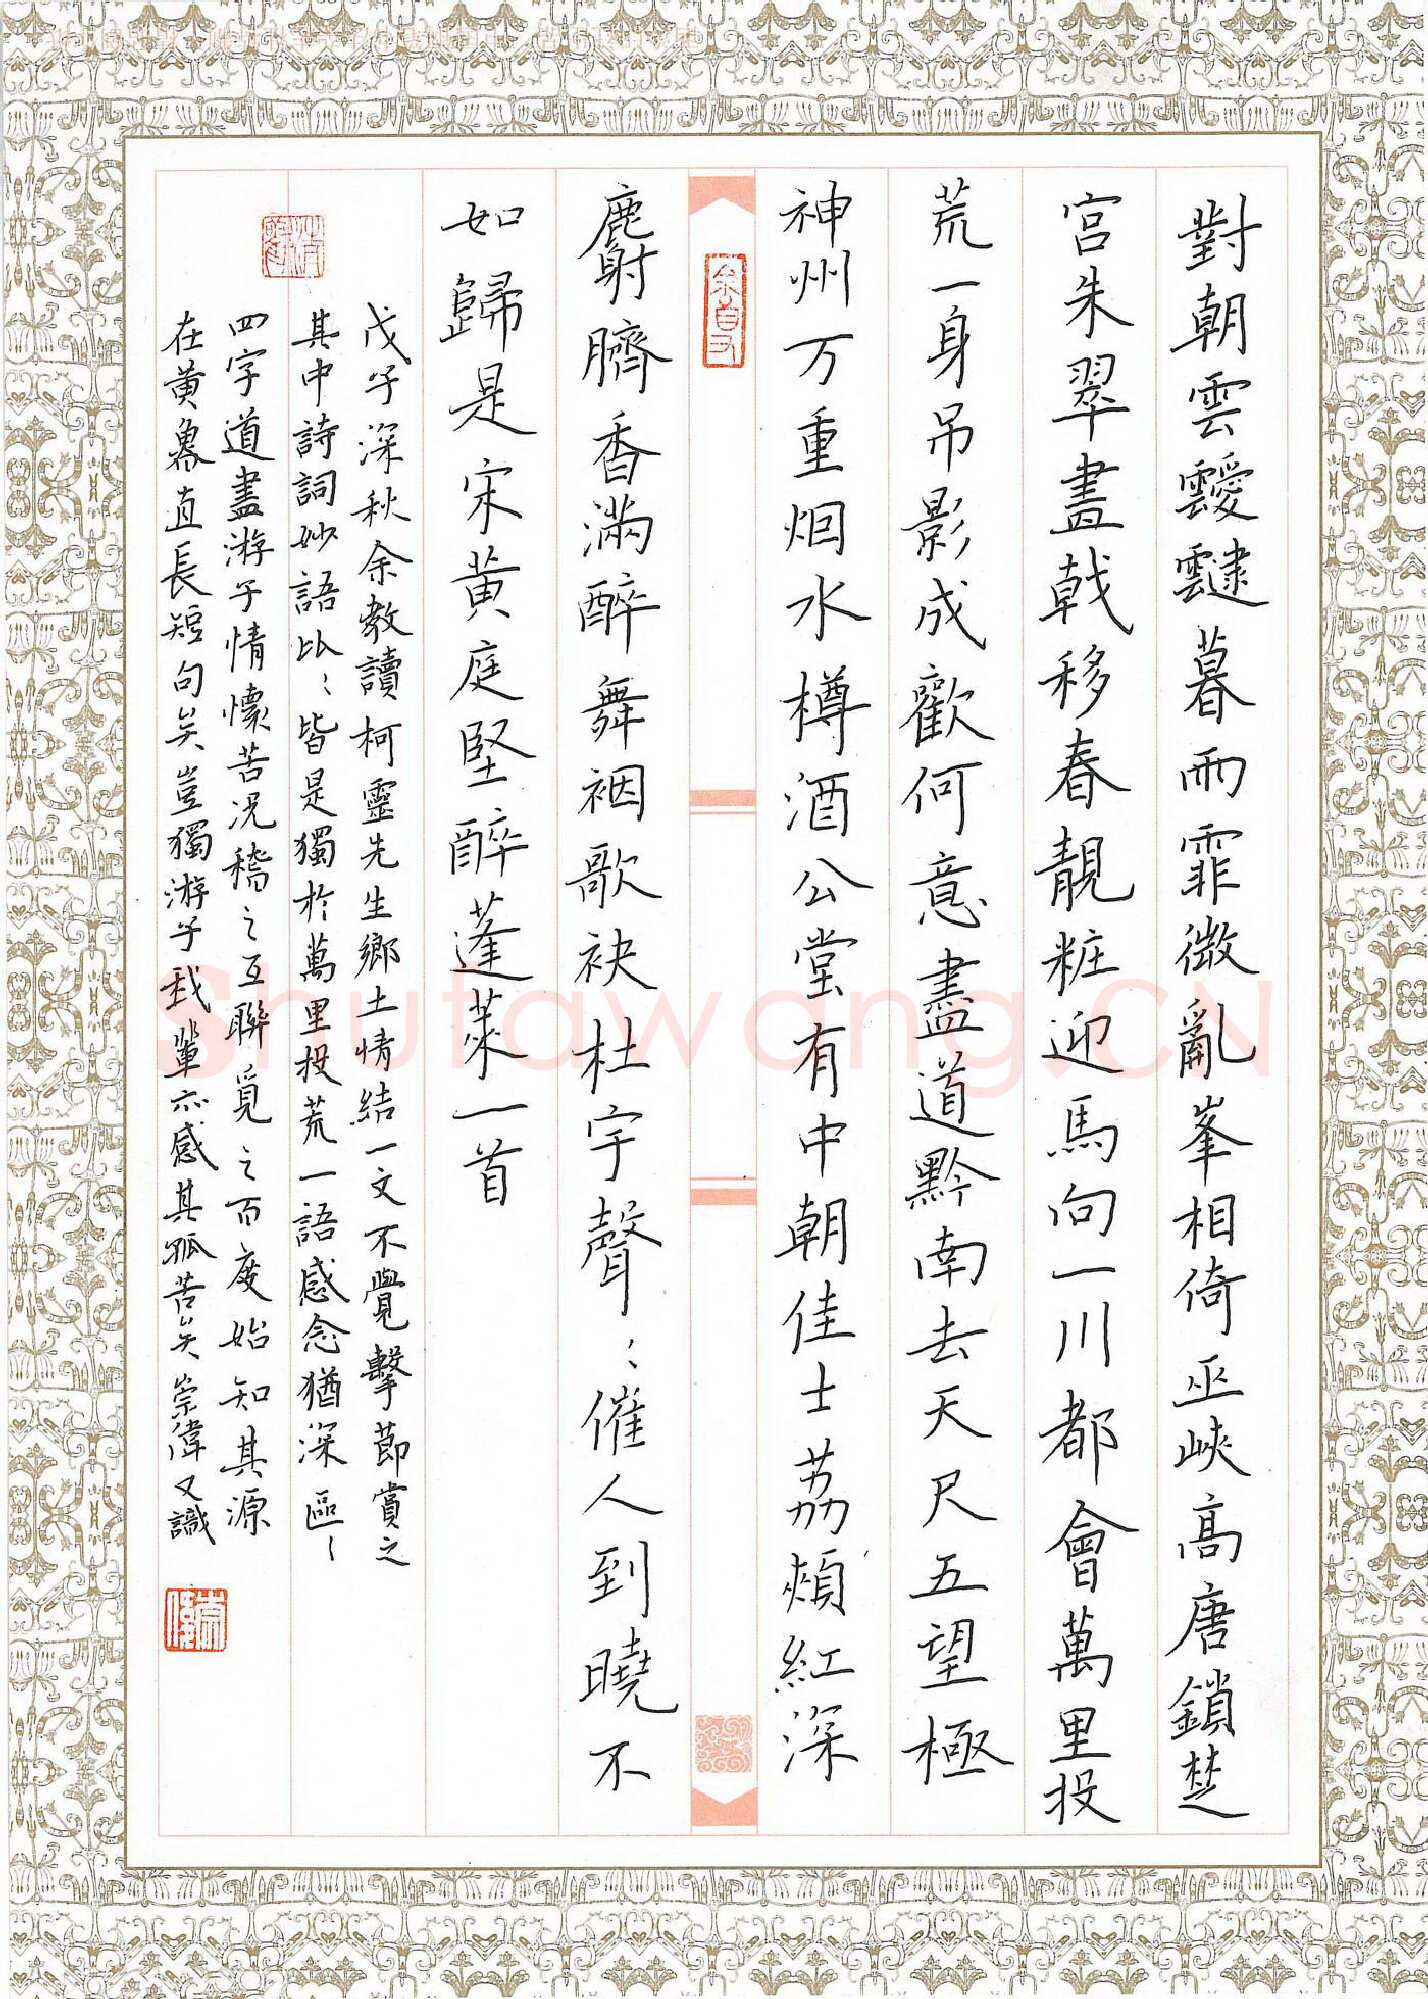 對朝雲靉靆暮雨霏微亂峯相倚巫峽高唐鎖楚
宮朱翠畫戟移春靚粧迎馬向一川都會萬里投
荒一身吊影成歡何意盡道黔南去天尺五望極
神州万重烟水樽酒公堂有中朝佳士荔頰紅深
麝臍香滿醉舞裀歌袂杜宇聲〻催人到曉不
如歸是宋黃庭堅醉蓬萊一首
戊子深秋余教讀柯靈先生鄉土情結一文不覺擊節賞之
其中詩詞妙語比〻皆是獨於萬里投荒一語感念猶深區〻
四字道盡游子情懷苦況稽之互聯覓之百度始知其源
在黃魯直長短句矣豈獨游子我輩亦感其孤苦矣崇偉又識
Shufawang.CN